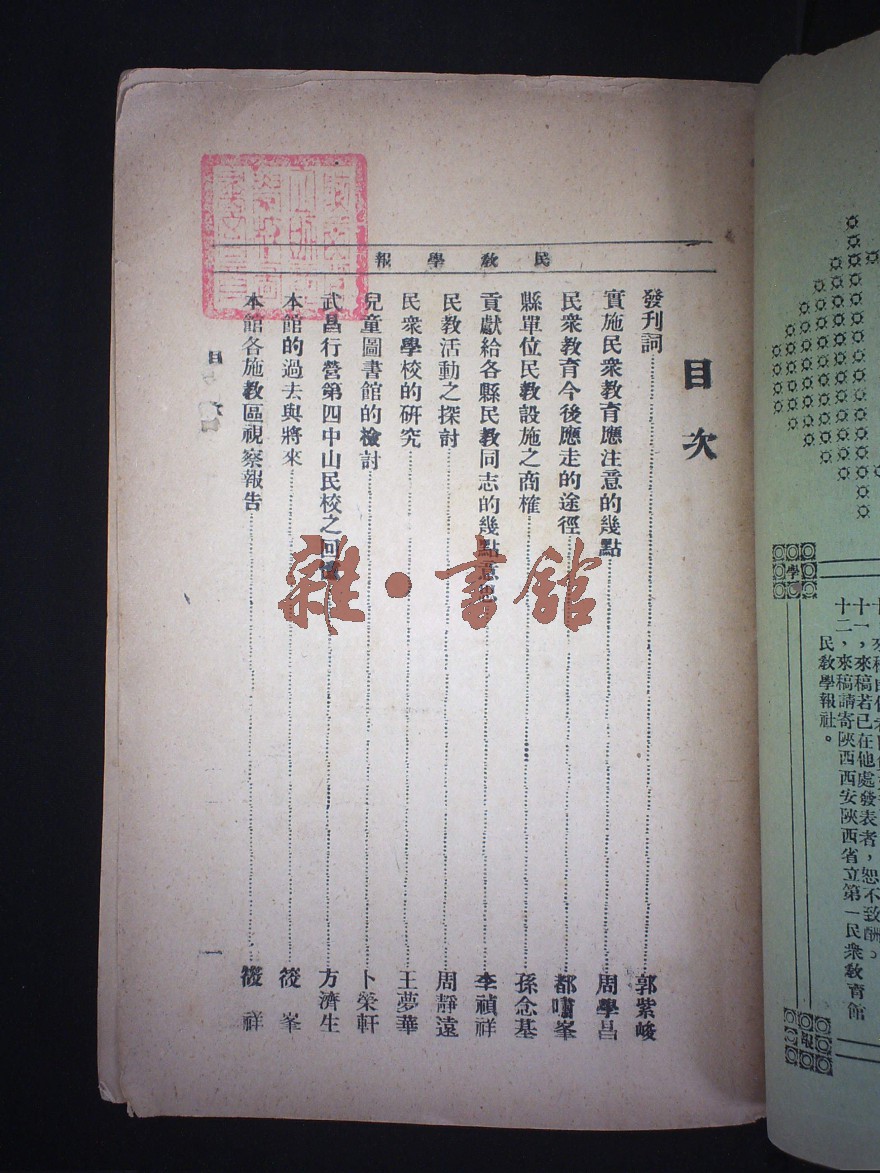 民教學報
目次
發刊詞 郭紫峻
實施民衆教育應注意的幾點 周學昌
民衆教育今後應走的途徑 都嘯峯
縣單位民教設施之商榷 孫念基
貢獻給各縣民教同志的幾點意 李禎祥
民教活動之探討 周靜遠
民衆學校的硏究 王夢華
兒童圖書館的檢討 卜榮軒
武昌行營第四中山民校之回 方濟生
本館的過去與將來 筱峯
本館各施教區視察報告 筱祥
目
一
雜·書館
學
報
十一，來稿若已在他處發表者，恕不致酬。
十二，來稿請寄陝西西安陝西省立第一民衆教育館
民教學報社。